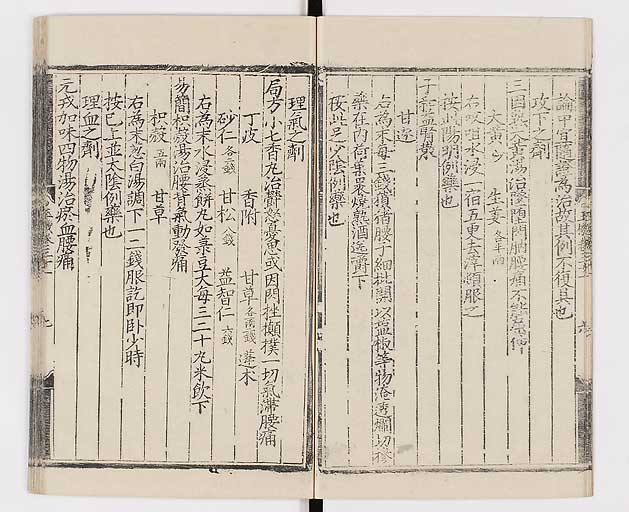 論中宜隨證為治故其例不復具也
攻下之劑
三因熟大黃湯治墮墜閃朒腰痛不能屈伸
大黃 生姜各半兩
右㕮咀水浸一宿五更去滓頓服之
按此陽明例藥也
子和益腎散
甘遂
右為末每三錢豮猪腰子細批開以塩椒等物淹透爛切摻
藥在內荷葉裹燒熟酒送嚼下
按此足少陰例藥也
理氣之劑
局方小七香丸治鬱怒憂思或因閃挫顛撲一切氣滯腰痛
丁皮 香附 甘草 蓬朮
砂仁 甘松八錢 益智仁六錢
右為末水浸蒸餅丸如菉豆大每三二十丸米飲下
易簡枳殼湯治腰背氣動發痛
枳殼五兩 甘草
右為末葱白湯調下一二錢服訖即卧少時
按已上並太陰例藥也
理血之劑
元戎加味四物湯治瘀血腰痛